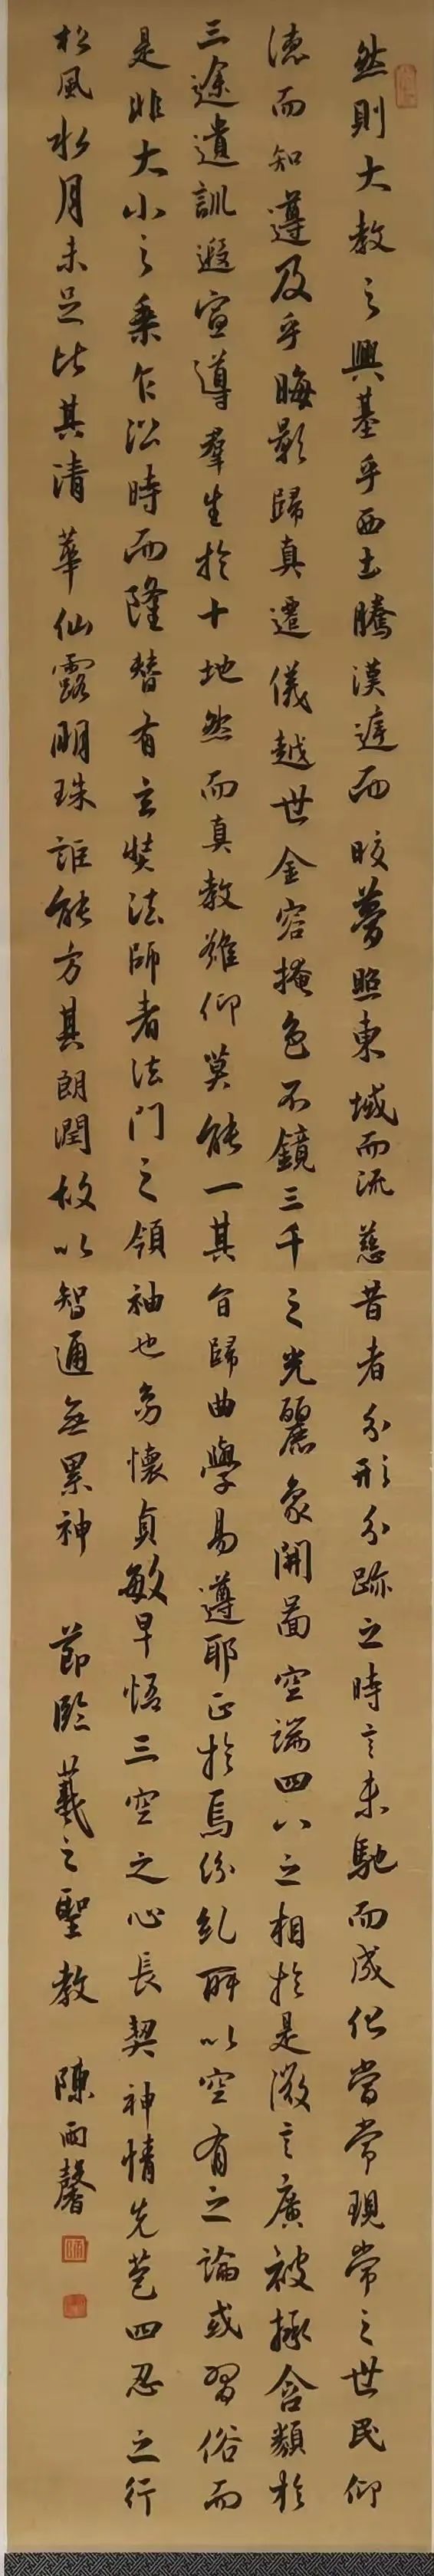 然則大教之興基乎西土騰漢庭而皎夢照東域而流慈昔者分形分跡之時言未馳而成化當常現常之世民仰
德而知遵及乎晦影歸真遷儀越世金容掩色不鏡三千之光麗象開圖空端四八之相於是微言廣被拯含類於
三途遺訓遐宣導羣生於十地然而真教難仰莫能一其旨歸曲學易遵耶正於焉紛糺所以空有之論或習俗而
是非大小之乘乍沿時而隆替有玄奘法師者法門之領袖也幼懷貞敏早悟三空之心長契神情先苞四忍之行
松風水月未足比其清華仙露明珠詎能方其朗潤故以智通無累神 節臨羲之聖教 陳雨馨